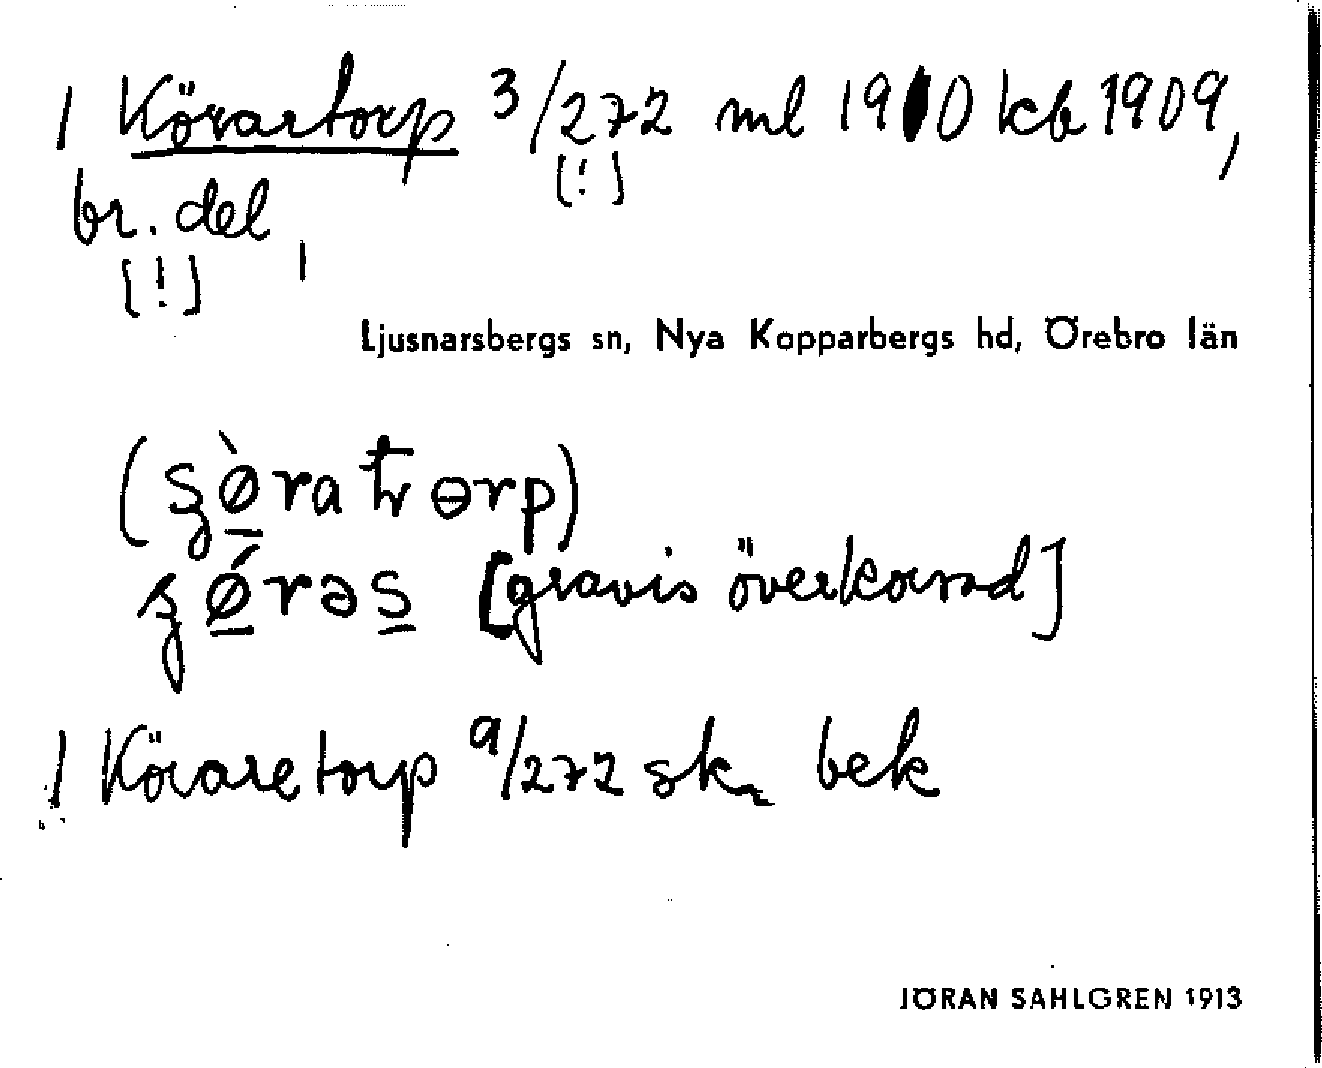 1 Körartorp 3/272 ml 1910 kb 1909,
[!]
br. del,
[!]
Ljusnarsbergs sn, Nya Kopparbergs hd, Örebro län
[gravis överkorsad]
1 Köraretorp a/272 sk. bek
JÖRAN SAHLGREN 1913